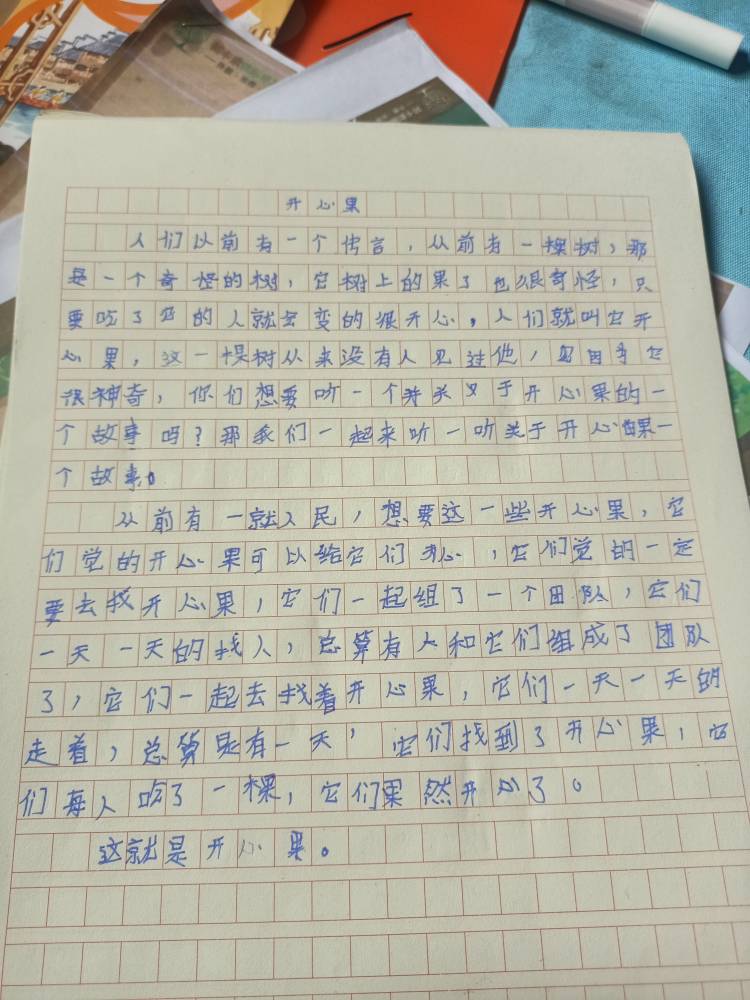 开心果
人们以前有一个传言，从前有一棵树，那
是一个奇怪的树，它树上的果了也很奇怪，只
要吃了它的人就会变的很开心，人们就叫它开
心果，这一棵树从来没有人见过他，因为它
很神奇，你们想要听一个关于开心果的一
个故事吗？那我们一起来听一听关于开心果一
个故事。
从前有一就人民，想要这一些开心果，它
们觉的开心果可以给它们开心，它们觉的一定
要去找开心果，它们一起组了一个团队，它们
一天一天的找人，总算有人和它们组成了团队
了，它们一起去找着开心果，它们一天一天的
走着，总算是有一天，它们找到了开心果，它
们每人吃了一棵，它们果然开心了。
这就是开心果。